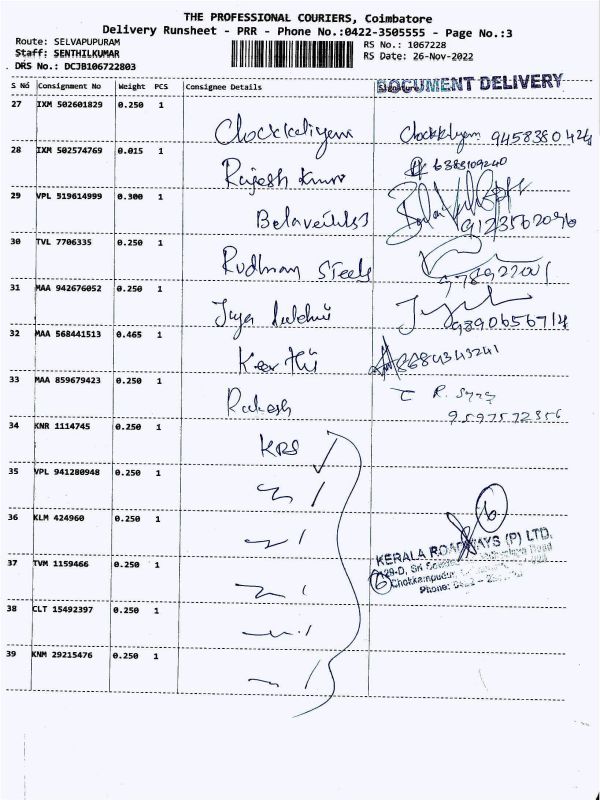 THE PROFESSIONAL COURIERS, Coimbatore
Delivery Runsheet - PRR - Phone No.:0422-3505555 - Page No.:3
Route: SELVAPUPURAM
RS No.: 1067228
Staff: SENTHILKUMAR
RS Date: 26-Nov-2022
DRS No.: DCJB106722803
DOCUMENT DELIVERY
S No Consignment No Weight PCS Consignee Details
27 IXM 502601829 0.250 1
28 IXM 502574769 0.015 1
Rajesh Kumar 6385109240
29 VPL 519614999 0.300 1
9123562096
30 TVL 7706335 0.250 1
Rudhran Steels
31 MAA 942676052 0.250 1
9890656714
32 MAA 568441513 0.465 1
Keerthi 8684343241
33 MAA 859679423 0.250 1
Rakesh R.
9597572356
34 KNR 1114745 0.250 1
KRS
35 VPL 941280948 0.250 1
36 KLM 424960 0.250 1
6
KERALA ROADWAYS (P) LTD.
37 TVM 1159466 0.250 1
6
38 CLT 15492397 0.250 1
39 KNM 29215476 0.250 1